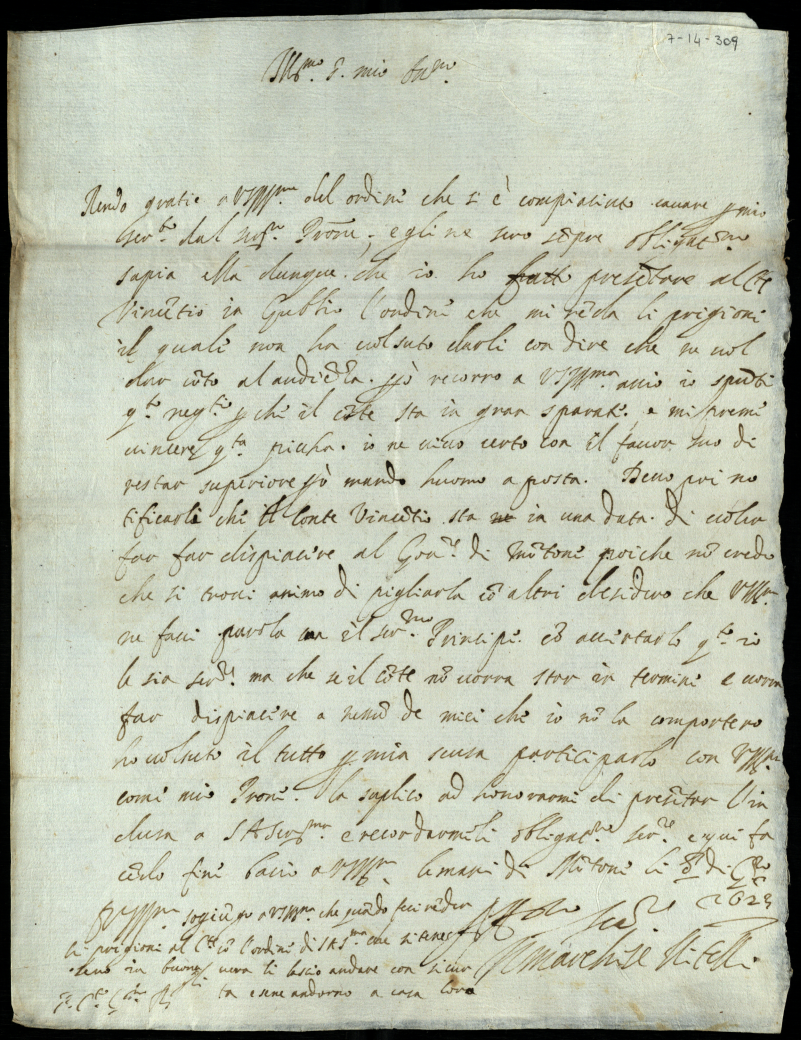 7-14-309
Ill.mo S. mio
Rendo gratie a VSIll.ma del ordine che si è compiaciuto cavare p mio
ser.to dal ser.mo Prone, e gli ne sero sẽpre obligat.mo
sapia ella dunque che io ho fatto presẽtare al Cõte
Vincẽtio in Gubbio l'ordine che mi rẽda li prigioni
il quale non ha volsuto darli con dire che ne vol
dar cõto al audiẽza. p̃ò recorro a VSIll.ma acciò io
q.to neg.tio p che il cõte sta in gran e mi preme
vincere q.ta picha. io ne vivo certo con il favor suo di
restar superiore p̃ò mando huomo a posta. Devo poi no
tificarli che il Conte Vincẽtio sta ne in una data di voler
far far dispiacere al Gov.re di Mõtone poiche nõ credo
che si trovi animo di pigliarla cõ altri desidero che VSIll.ma
ne faci parola con il ser.mo Principe cõ accertarlo q.to io
le sia ser.re ma che se il cõte nõ vorra star in termine e vorra
far dispiacere a nesuno de miei che io nõ la comportero
ho volsuto il tutto p mia scusa participarlo con VSIll.ma
come mio Prone. la suplico ad honorarmi di presẽtar l'in
clusa a SASer.ma e recordarmeli obligat.mo ser.re e qui fa
cẽdo fine bacio a VSIll.ma le mani di Mõtone li 8 di
1623
D VSIll.ma
sogiũgo a VSIll.ma che quãdo feci rẽder
li prigioni al Cõte cõ l'ordine di SAS.ma che si tenes
sero in buona vera li lascio andare con sicur
ta e sene andorno a casa loro
Ser.re
Il marchese Vitelli